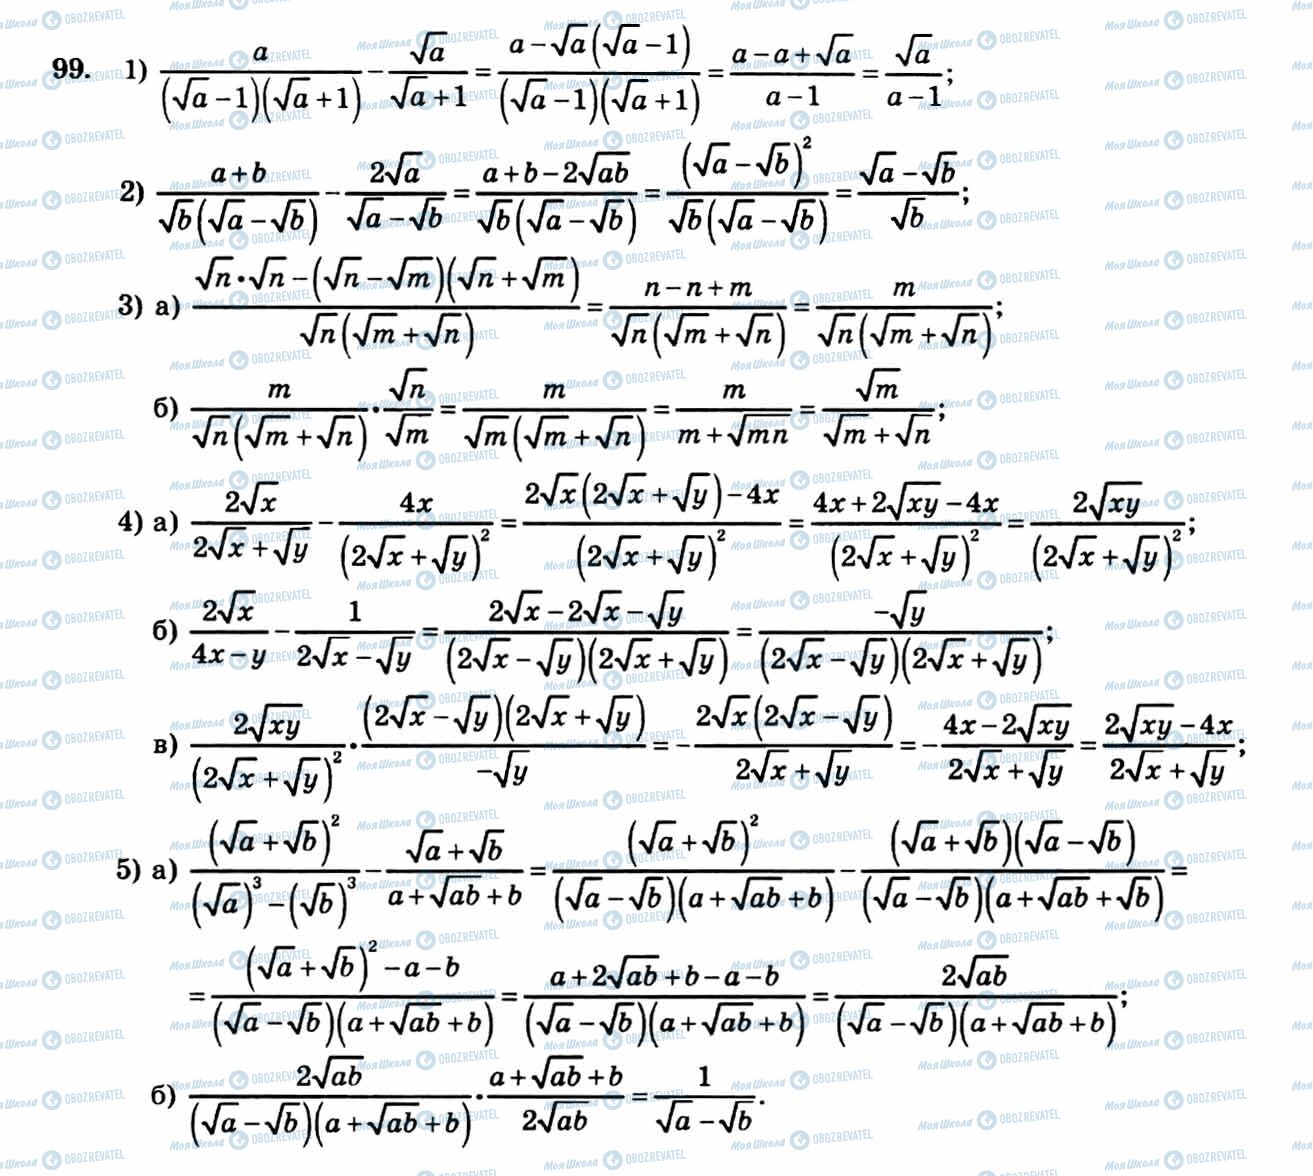 99. 1) a/((√a−1)(√a+1)) − √a/(√a+1) = (a−√a(√a−1))/((√a−1)(√a+1)) = (a−a+√a)/(a−1) = √a/(a−1);
2) (a+b)/(√b(√a−√b)) − 2√a/(√a−√b) = (a+b−2√(ab))/(√b(√a−√b)) = (√a−√b)²/(√b(√a−√b)) = (√a−√b)/√b;
3) а) (√n•√n−(√n−√m)(√n+√m))/(√n(√m+√n)) = (n−n+m)/(√n(√m+√n)) = m/(√n(√m+√n));
б) m/(√n(√m+√n)) • √n/√m = m/(√m(√m+√n)) = m/(m+√(mn)) = √m/(√m+√n);
4) а) 2√x/(2√x+√y) − 4x/(2√x+√y)² = (2√x(2√x+√y)−4x)/(2√x+√y)² = (4x+2√(xy)−4x)/(2√x+√y)² = 2√(xy)/(2√x+√y)²;
б) 2√x/(4x−y) − 1/(2√x−√y) = (2√x−2√x−√y)/((2√x−√y)(2√x+√y)) = −√y/((2√x−√y)(2√x+√y));
в) 2√(xy)/(2√x+√y)² • ((2√x−√y)(2√x+√y))/(−√y) = −(2√x(2√x−√y))/(2√x+√y) = −(4x−2√(xy))/(2√x+√y) = (2√(xy)−4x)/(2√x+√y);
5) а) (√a+√b)²/((√a)³−(√b)³) − (√a+√b)/(a+√(ab)+b) = (√a+√b)²/((√a−√b)(a+√(ab)+b)) − ((√a+√b)(√a−√b))/((√a−√b)(a+√(ab)+√b)) =
= ((√a+√b)²−a−b)/((√a−√b)(a+√(ab)+b)) = (a+2√(ab)+b−a−b)/((√a−√b)(a+√(ab)+b)) = 2√(ab)/((√a−√b)(a+√(ab)+b));
б) 2√(ab)/((√a−√b)(a+√(ab)+b)) • (a+√(ab)+b)/(2√(ab)) = 1/(√a−√b).
МояШкола OBOZREVATEL